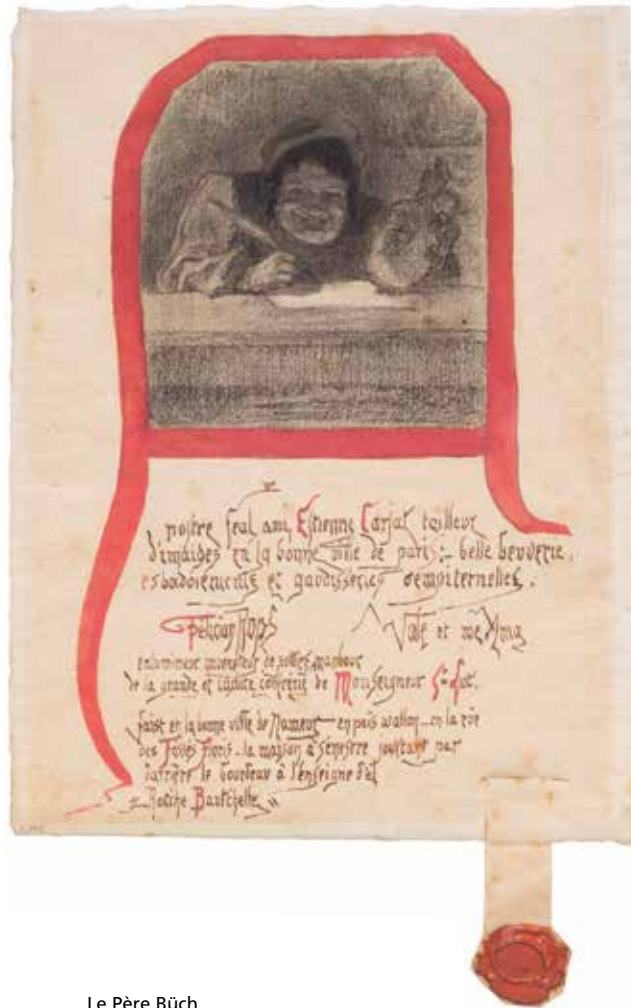 nostre feal ami Estienne Carjat tailleur
d'imaiges en la bonne ville de paris : belle beuverie,
esbadoiements et gaudisseries sempiternelles.
Félicien Rops
Vale et me Ama
enlumineur inventeur de
de la grande et confrerie de Monseigneur
faict en la bonne ville de Nameur en païs wallon en la rüe
des Fossés Floris la maison a senestre joustant par
darrière le bourdeau à l'enseigne d'al
" Rotche Bartchette "
Le Père Büch